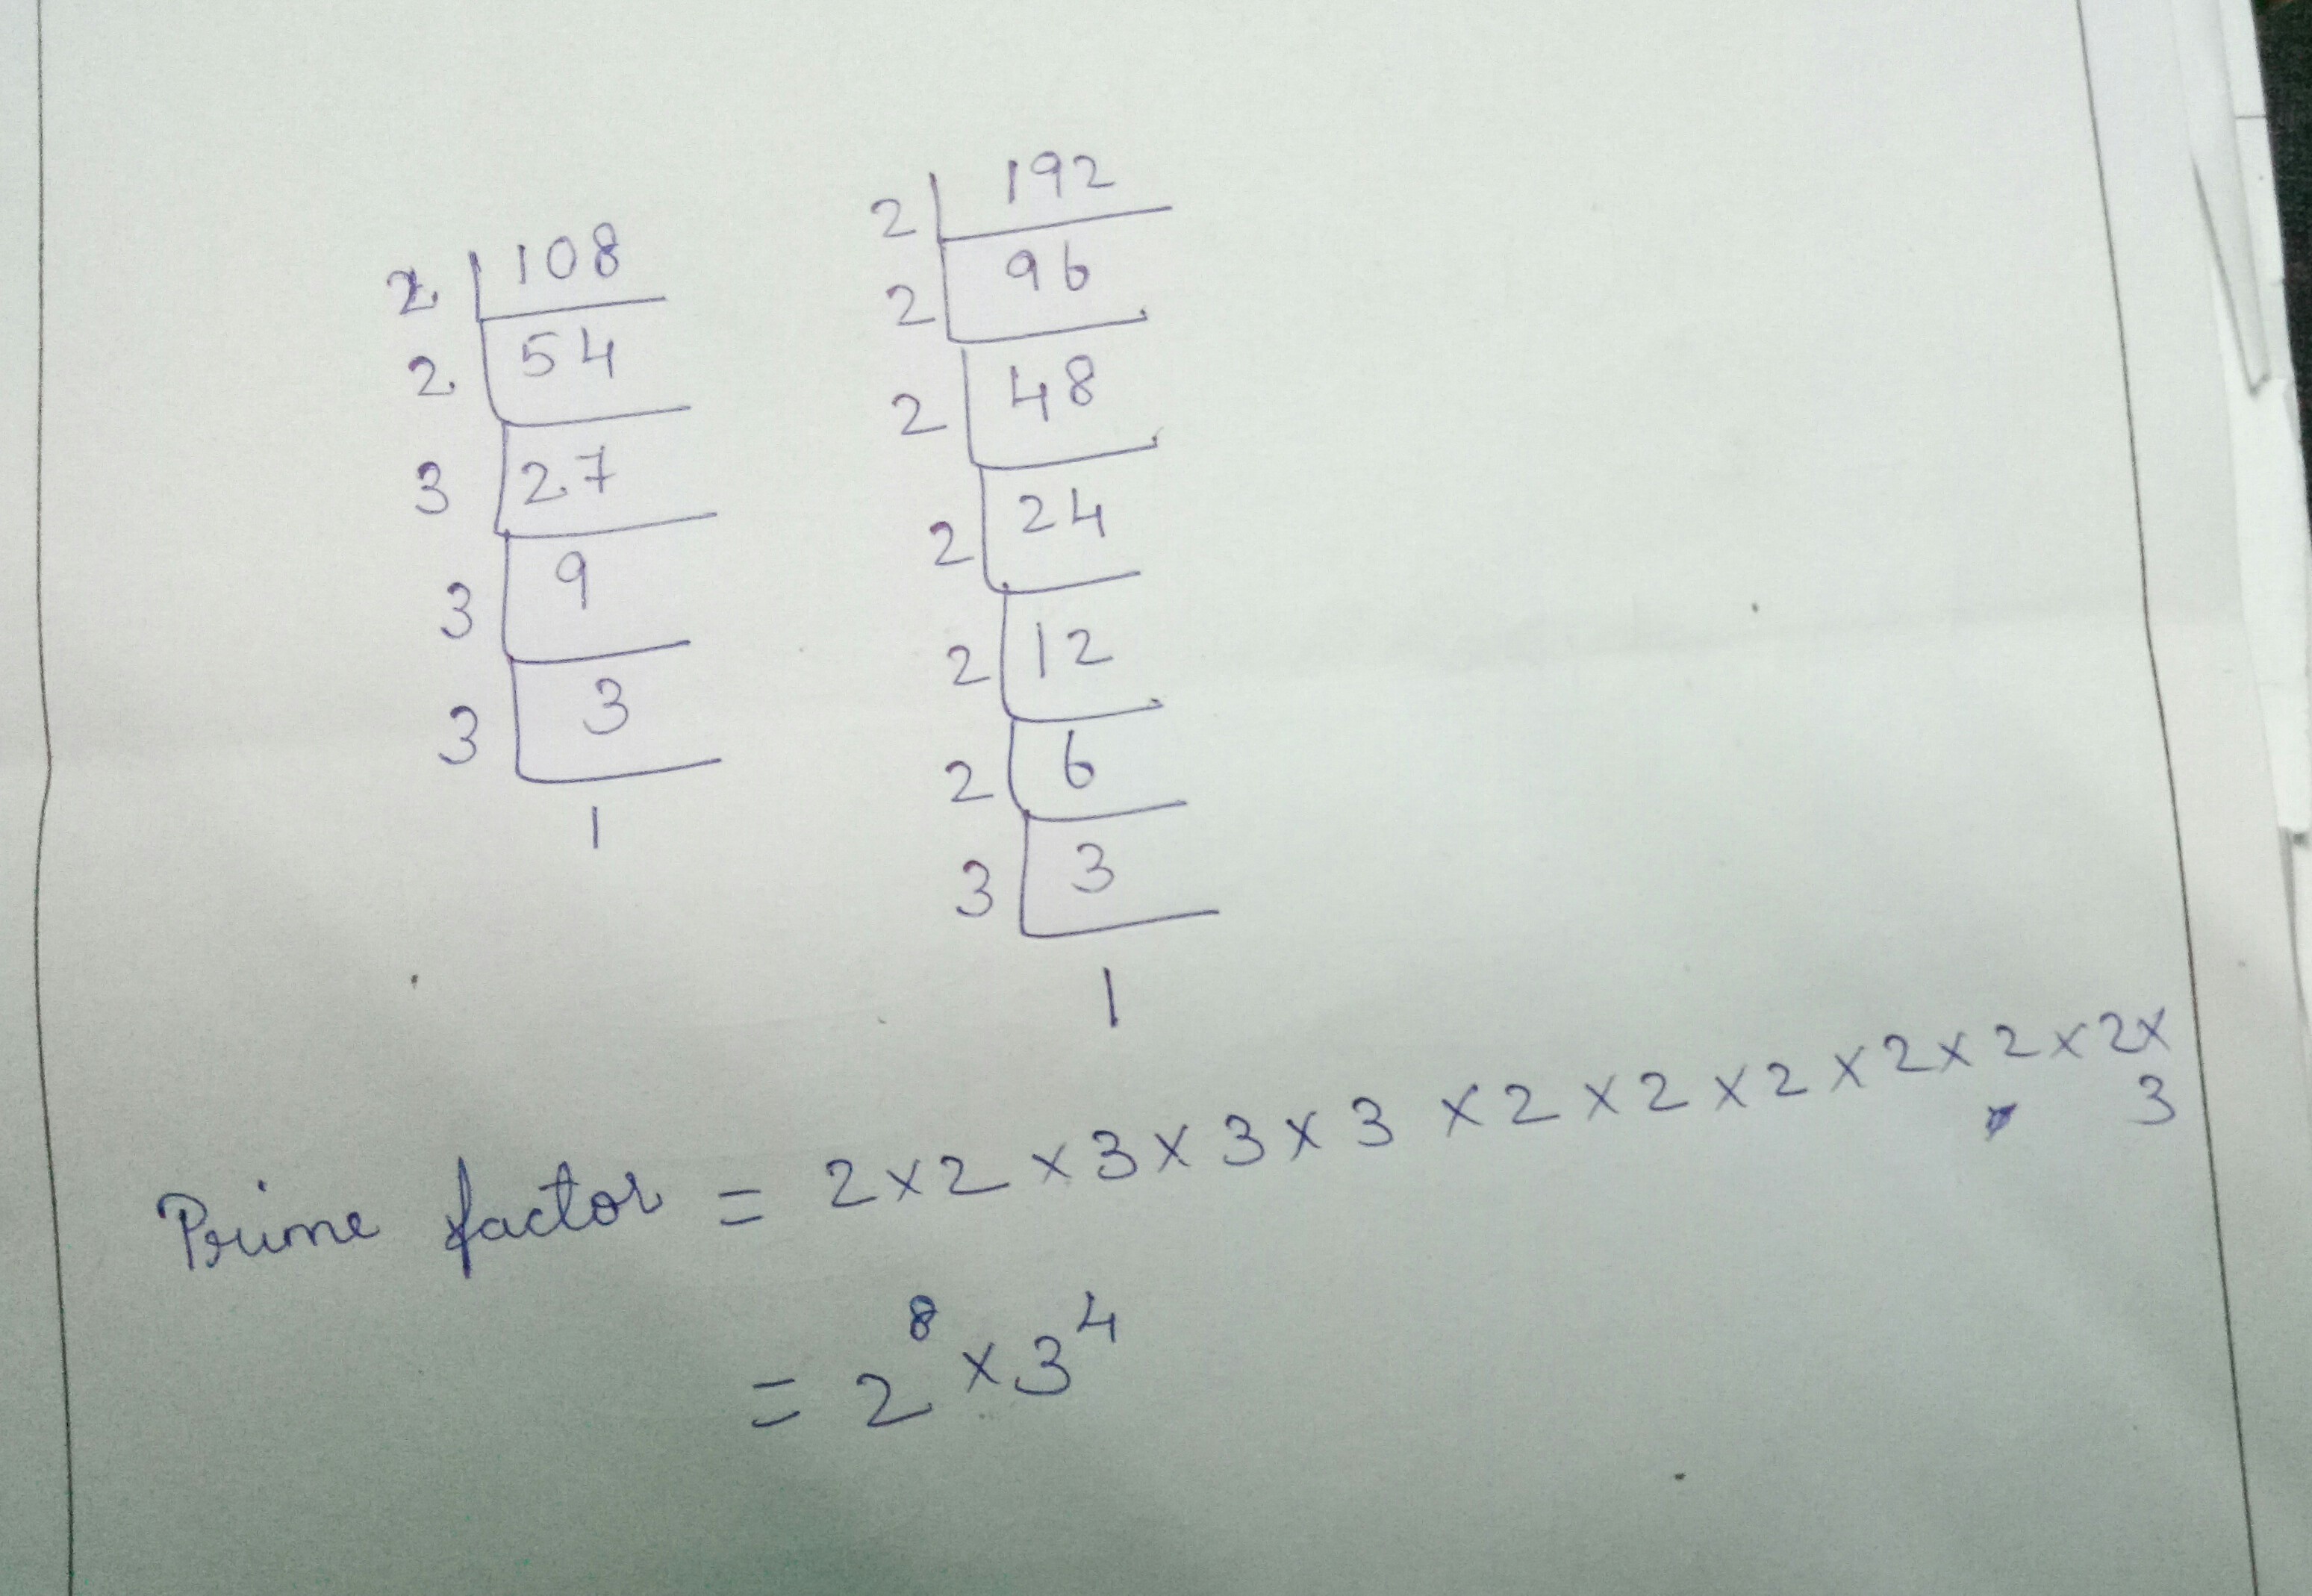 2 108
2 54
3 27
3 9
3 3
1
2 192
2 96
2 48
2 24
2 12
2 6
3 3
1
Prime factor = 2×2×3×3×3×2×2×2×2×2×2×
3
= 2⁸×3⁴